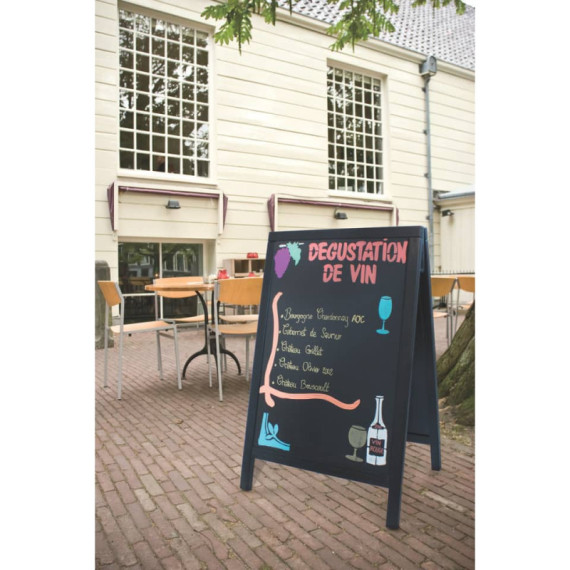 DEGUSTATION
DE VIN
Bourgogne Chardonnay AOC
Cabernet de Saumur
Château Grillet
Château Olivier
Château
VIN